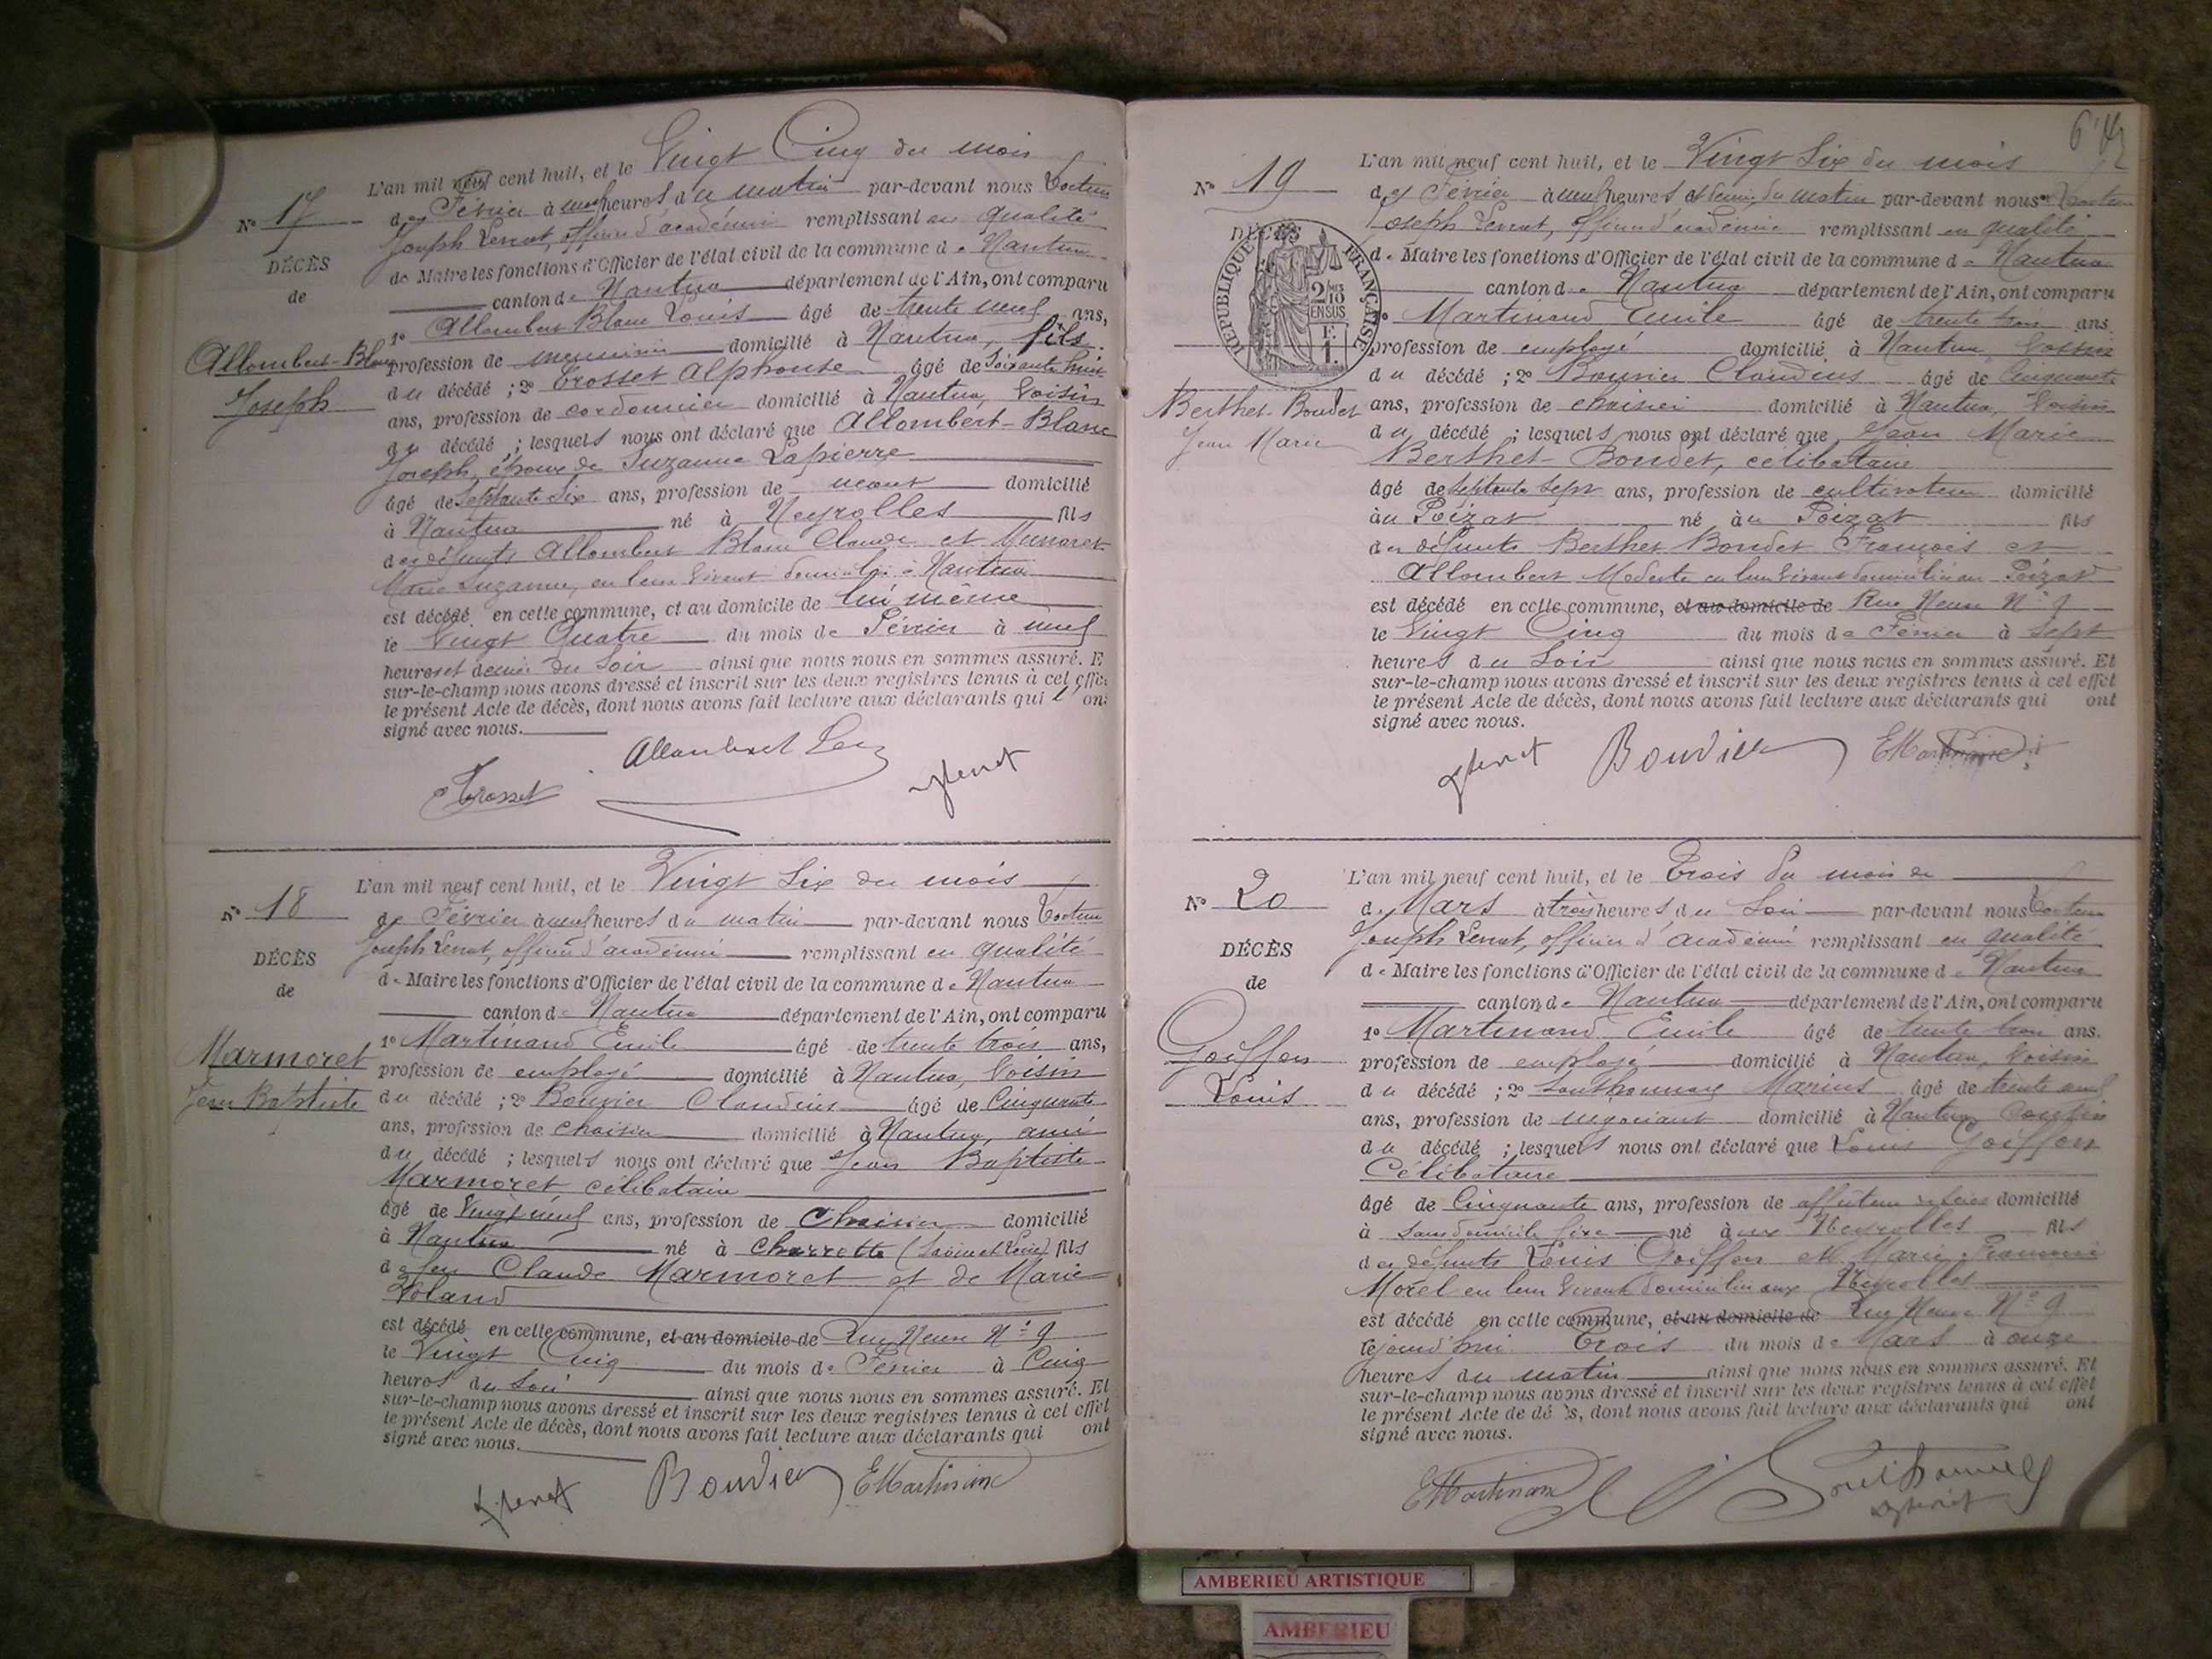 L'an mil neuf cent huit, et le Vingt Cinq du mois
N° 17
de Février à neuf heures du matin par-devant nous Docteur
Joseph officier d'académie remplissant en qualité
DÉCÈS
de Maire les fonctions d'Officier de l'état civil de la commune de Nantua
de
canton de Nantua département de l'Ain, ont comparu
1° Allombert Blanc Louis âgé de trente neuf ans,
Allombert-Blanc
profession de menuisier domicilié à Nantua, fils
Joseph
du décédé ; 2° Crosset Alphonse âgé de Soixante huit
ans, profession de cordonnier domicilié à Nantua, Voisin
du décédé ; lesquels nous ont déclaré que Allombert-Blanc
Joseph, époux de Suzanne Lapierre
âgé de Septante Six ans, profession de néant domicilié
à Nantua né à Neyrolles fils
des défunts Allombert Blanc Claude et
Marie Suzanne, en leur vivant domiciliés à Nantua
est décédé en cette commune, et au domicile de lui même
le Vingt Quatre du mois de Février à neuf
heures et demie du Soir ainsi que nous nous en sommes assuré. E
sur-le-champ nous avons dressé et inscrit sur les deux registres tenus à cet effet
le présent Acte de décès, dont nous avons fait lecture aux déclarants qui l'ont
signé avec nous.
Crosset Allombert
L'an mil neuf cent huit, et le Vingt Six du mois
N° 18
de Février à neuf heures du matin par-devant nous Docteur
Joseph officier d'académie remplissant en qualité
DÉCÈS
de Maire les fonctions d'Officier de l'état civil de la commune de Nantua
de
canton de Nantua département de l'Ain, ont comparu
1° Martinand Emile âgé de trente trois ans,
Marmoret
profession de employé domicilié à Nantua, Voisin
Jean Baptiste
du décédé ; 2° Bouvier Claudius âgé de Cinquante
ans, profession de chaisier domicilié à Nantua, ami
du décédé ; lesquels nous ont déclaré que Jean Baptiste
Marmoret célibataire
âgé de Vingt neuf ans, profession de Chaisier domicilié
à Nantua né à Charrette fils
de feu Claude Marmoret et de Marie
est décédé en cette commune, et au domicile de Rue Neuve N° 9
le Vingt Cinq du mois de Février à Cinq
heures du Soir ainsi que nous nous en sommes assuré. Et
sur-le-champ nous avons dressé et inscrit sur les deux registres tenus à cet effet
le présent Acte de décès, dont nous avons fait lecture aux déclarants qui ont
signé avec nous.
Bouvier EMartinand
L'an mil neuf cent huit, et le Vingt Six du mois
N° 19
de Février à neuf heures et demie du matin par-devant nous Docteur
Joseph officier d'académie remplissant en qualité
DÉCÈS
RÉPUBLIQUE FRANÇAISE
2/10 EN SUS
de Maire les fonctions d'Officier de l'état civil de la commune de Nantua
canton de Nantua département de l'Ain, ont comparu
1° Martinand Emile âgé de trente trois ans.
profession de employé domicilié à Nantua Voisin
du décédé ; 2° Bouvier Claudius âgé de Cinquante
Berthet-Boudet
ans, profession de chaisier domicilié à Nantua, Voisin
Jean Marie
du décédé ; lesquels nous ont déclaré que Jean Marie
Berthet-Boudet, célibataire
âgé de septante sept ans, profession de cultivateur domicilié
au Poizat né au Poizat fils
des défunts Berthet Boudet François et
Allombert Modeste en leur vivant domiciliés au Poizat
est décédé en cette commune, et au domicile de Rue Neuve N° 9
le Vingt Cinq du mois de Février à Sept
heures du Soir ainsi que nous nous en sommes assuré. Et
sur-le-champ nous avons dressé et inscrit sur les deux registres tenus à cet effet
le présent Acte de décès, dont nous avons fait lecture aux déclarants qui ont
signé avec nous.
Bouvier EMartinand
L'an mil neuf cent huit, et le Trois du mois de
N° 20
de Mars à trois heures du Soir par-devant nous Docteur
Joseph officier d'académie remplissant en qualité
DÉCÈS
de Maire les fonctions d'Officier de l'état civil de la commune de Nantua
de
canton de Nantua département de l'Ain, ont comparu
1° Martinand Emile âgé de trente trois ans.
Goiffon
profession de employé domicilié à Nantua, Voisin
Louis
du décédé ; 2° Marius âgé de trente neuf
ans, profession de négociant domicilié à Nantua, Cousin
du décédé ; lesquels nous ont déclaré que Louis Goiffon
Célibataire
âgé de Cinquante ans, profession de affûteur de scies domicilié
à sans domicile fixe né aux Neyrolles fils
des défunts Louis Goiffon et Marie Françoise
Morel en leur vivant domiciliés aux Neyrolles
est décédé en cette commune, et au domicile de Rue Neuve N° 9
le jourd'hui Trois du mois de Mars à onze
heures du matin ainsi que nous nous en sommes assuré. Et
sur-le-champ nous avons dressé et inscrit sur les deux registres tenus à cet effet
le présent Acte de décès, dont nous avons fait lecture aux déclarants qui ont
signé avec nous.
EMartinand
AMBERIEU ARTISTIQUE
AMBERIEU